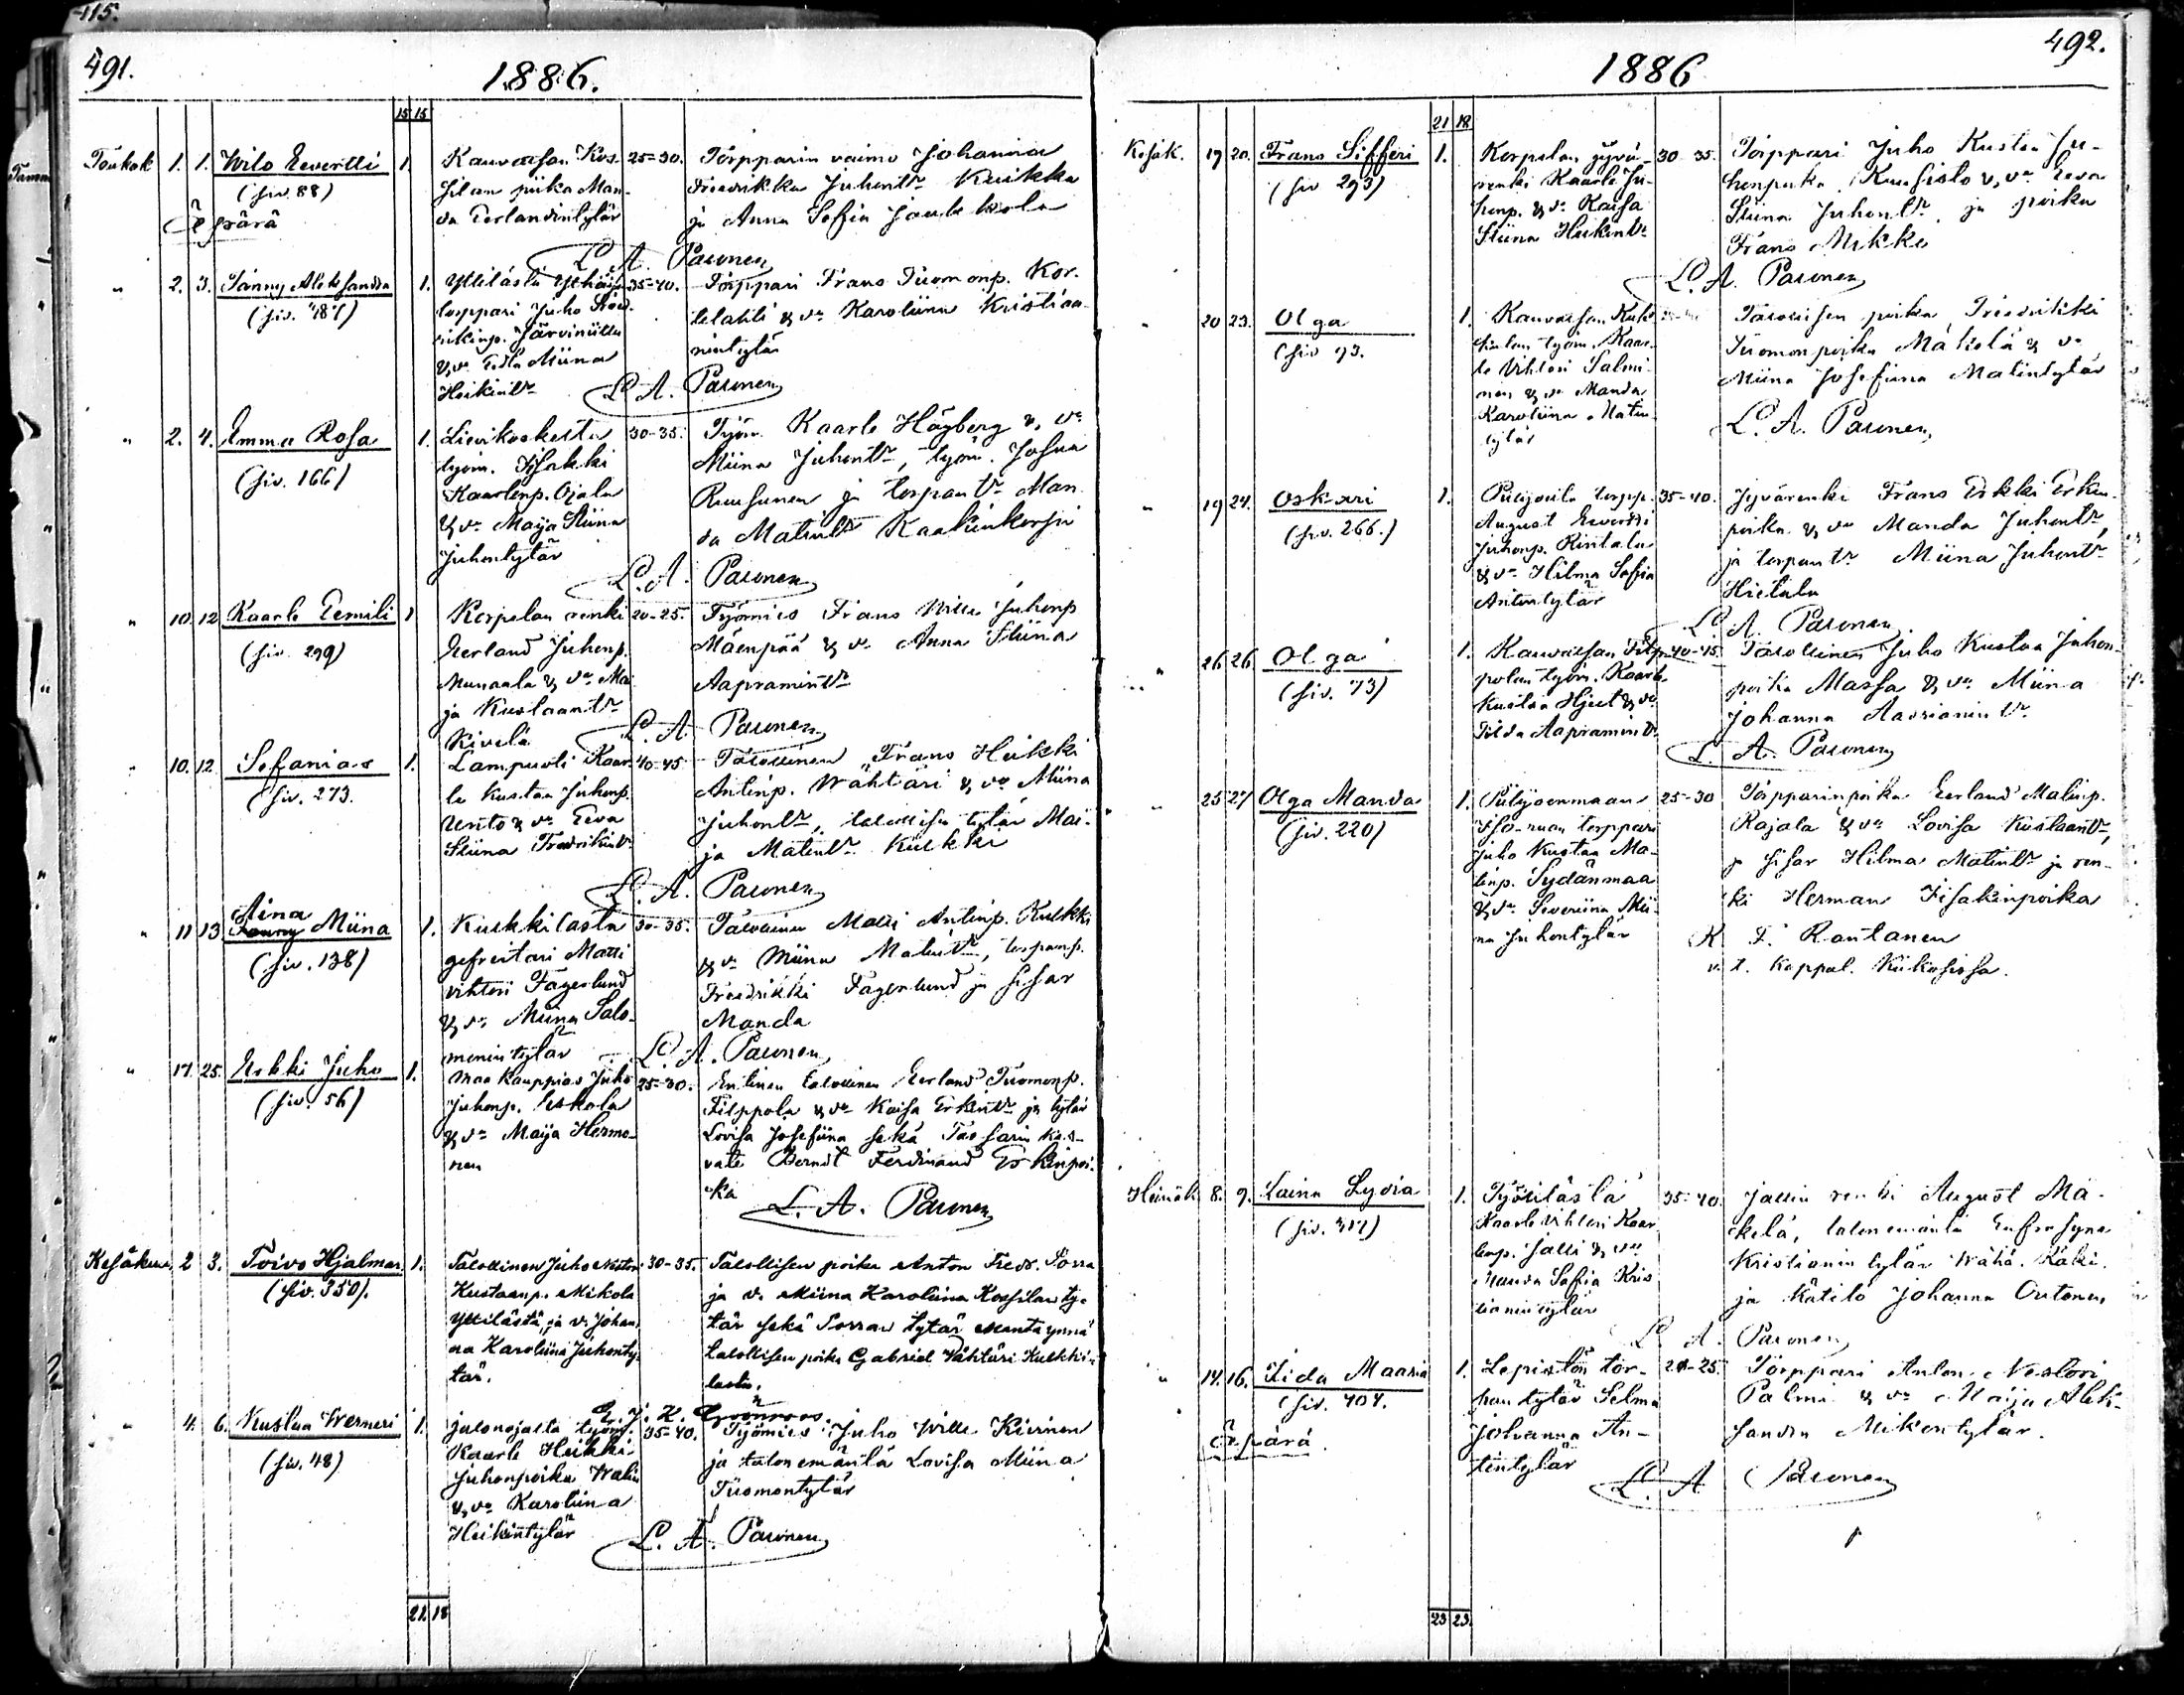 115.
491.
1886.
15 15
Toukok 1. 1. Wilo Eevertti 1.
(siv. 88)
Äpärä
Kauvatsan Kos-
silan piika Man-
da Eerlandintytär
25-30.
Törpparin vaimo Johanna
Fredrikka Juhontr Kuikka
ja Anna Sofia Jaakkola
L. A. Paronen
" 2. 3. Fanny Aleksandra 1.
(siv. 487)
torppari Juho
Järviniitty
& vo Edla Miina
Heikintr
35-40.
Torppari Frans Tuomonp. Kor-
telahti & vo Karoliina Kristian-
nintytär
L. A. Paronen
" 2. 4. Emma Rosa 1.
(siv. 166)
Lievikoskelta
työm. Iisakki
Kaarlenp. Ojala
& vo Maija Stiina
Juhontytär
30-35.
Työm. Kaarle Högberg & vo
Miina Juhontr, työm. Josua
Ruusunen ja torpantr Man-
da Matintr
L. A. Paronen
" 10. 12 Kaarle Eemili 1
(siv. 299)
Korpelan renki
Eerland Juhonp.
Munaala & vo Mai-
ja Kustaantr
Kivelä
20-25.
Työmies Frans Wille Juhonp
Mäenpää & vo Anna Stiina
Aapramintr
L. A. Paronen
" 10. 12. Sefanias 1.
(siv. 273.
Lampuoti Kaar-
le Kustaa Juhonp.
Unto & vo Eeva
Stiina Fredrikintr
40-45
Talollinen Frans Heikki
Antinp. Wähtäri & vo Miina
Juhontr, talollisen tytär Mai-
ja Matintr Kulkki
L. A. Paronen
" 11 13 Aina
Fanny Miina 1.
(siv. 138)
Kulkkilasta
gefreitari Matti
Vihtori Fagerlund
& vo Miina Salo-
monintytär
30-35.
Talollinen Matti Antinp. Kulkki
& vo Miina Matintr, torpanp.
Fredrikki Fagerlund ja sisar
Manda
L. A. Paronen
" 17. 25. Erkki Juho 1.
(siv. 56)
Maakauppias Juho
Juhonp. Eskola
& vo Maija Hermo-
nen
25-30.
Entinen talollinen Eerland Tuomonp.
Filppola & vo Kaisa Erkintr ja tytär
Lovisa Josefiina sekä
Berndt Ferdinand Erkinpoi-
ka
L. A. Paronen
Kesäkuu 2 3. Toivo Hjalmar 1.
(siv. 350).
Talollinen Juho Nestor
Kustaanp. Mikola
Yttilästä ja v. Johan-
na Karoliina Juhonty-
tär.
30-35.
Talollisen poika Anton Fredr. Sorra
ja v. Miina Karoliina Kossilan ty-
tär sekä Sorran tytär Manta ynnä
talollisen poika Gabriel Vähtäri Kulkki-
lasta.
" 4. 6. Kustaa Werneri 1.
(siv. 48)
Julonojalta työm.
Kaarle Heikki
Juhonpoika Walin
& vo Karoliina
Heikintytär
35-40.
Työmies Juho Wille Kivinen
ja talonemäntä Lovisa Miina
Tuomontytär
L. A. Paronen
21 18
492.
1886
21 18
Kesäk. 19 20. Frans Sifferi 1.
(siv 293)
Korpelan jyvä-
renki Kaarle Ju-
honp. & vo Kaisa
Stiina Heikintr
30-35.
Torppari Juho Kustaa Ju-
honpoika Kuusisto & vo Eeva
Stiina Juhontr ja poika
Frans Mikko
L. A. Paronen
" 20 23. Olga 1.
(siv 73.
työm. Kaar-
le Vihtori Salmi-
nen & vo Manda
Karoliina Matin-
tytär
Talollisen poika Fredrikki
Tuomonpoika Mäkelä & vo
Miina Josefiina Matintytär
L. A. Paronen
" 19 24. Oskari 1.
(siv. 266.)
August Eevertti
Juhonp. Rintala
& vo Hilma Sofia
Antintytär
35-40.
Jyvärenki Frans Erkki Erkin-
poika & vo Manda Juhontr,
ja torpantr Miina Juhontr
Hietala
L. A. Paronen
" 26 26. Olga 1.
(siv. 73)
Kauvatsan Filp-
polan työm. Kaarle
Kustaa Hjelt & vo
Tilda Aapramintr
40-45.
Talollinen Juho Kustaa Juhon-
poika Massa & vo Miina
Johanna Aadrianintr
L. A. Paronen
" 25 27 Olga Manda 1.
(siv. 220)
Puljoenmaan
Iso-ruan torppari
Juho Kustaa Ma-
tinp. Sydänmaa
& vo Severiina Mii-
na Juhontytär
25-30
Törpparinpoika Eerland Matinp.
Rajala & vo Lovisa Kustaantr,
ja sisar Hilma Matintr ja ren-
ki Herman Iisakinpoika
K. F. Rantanen
v. t. kappal. Kiikoisissa.
Heinäk. 8. 9. Laina Lydia 1.
(siv. 317)
Kaarle Vihtori Kaar-
lenp. Jalli & vo
Manda Sofia Kris-
tianintytär
35-40.
Jallin renki August Mä-
kelä, talonemäntä Eufrosyne
Kristianintytär Wähä-Käki.
ja kätilö Johanna Ontonen
L. A. Paronen
" 14. 16. Iida Maaria 1.
(siv. 404.
Äpärä.
Lepistön tor-
pan tytär Selma
Johanna An-
tintytär
20-25.
Törppari Anton Nestori
Palmi & vo Maija Alek-
sandra Mikontytär.
L. A. Paronen
23 23.